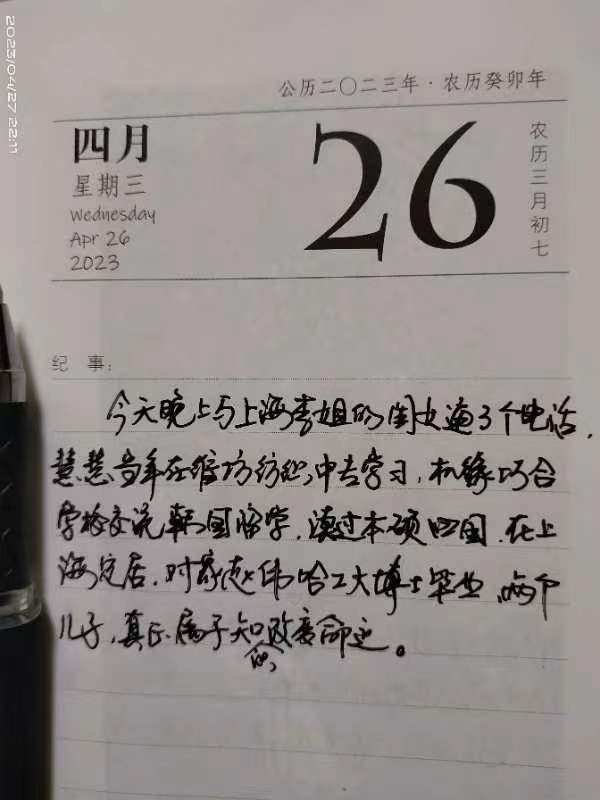 2023/04/27 22:11
公历二〇二三年·农历癸卯年
四月
星期三
Wednesday
Apr 26
2023
26
农历三月初七
纪 事:
今天晚上与上海李姐的闺女通了个电话,
慧慧当年在潍坊纺织中专学习,机缘巧合
学校交流韩国留学,读过本硕回国,在上
海定居,对象赵伟哈工大博士毕业,两个
儿子,真正属于知识改变命运。